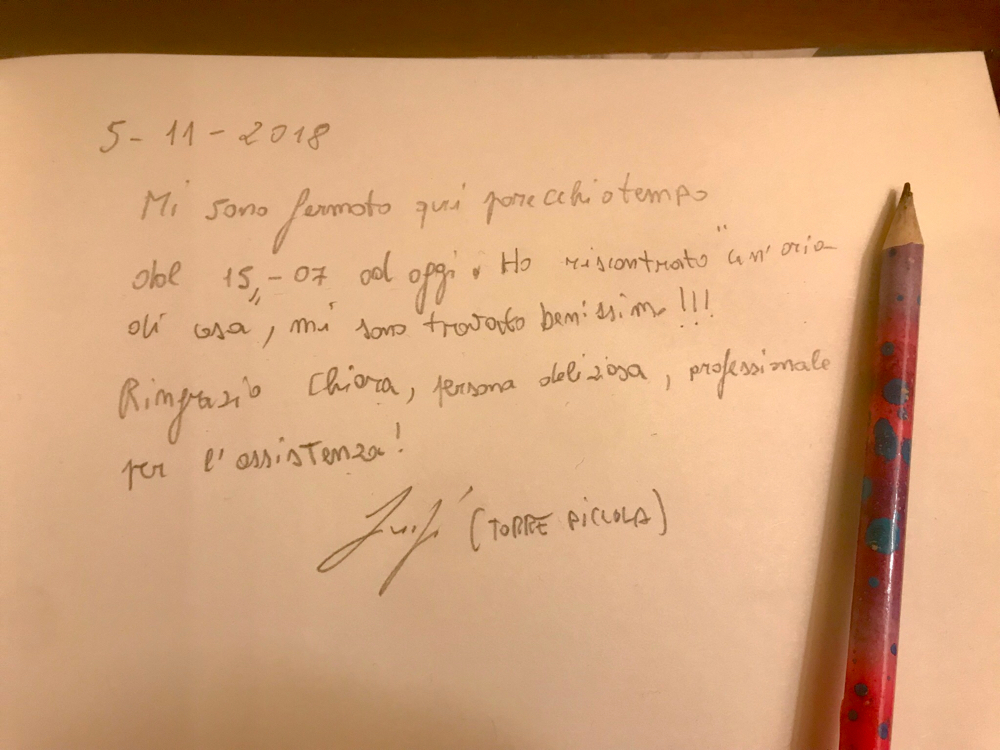 5-11-2018
Mi sono fermato qui parecchio tempo
dal 15,-07 ad oggi. Ho riscontrato "un'aria
di casa", mi sono trovato benissimo!!!
Ringrazio Chiara, persona deliziosa, professionale
per l'assistenza!
Luigi (TORRE PICCOLA)